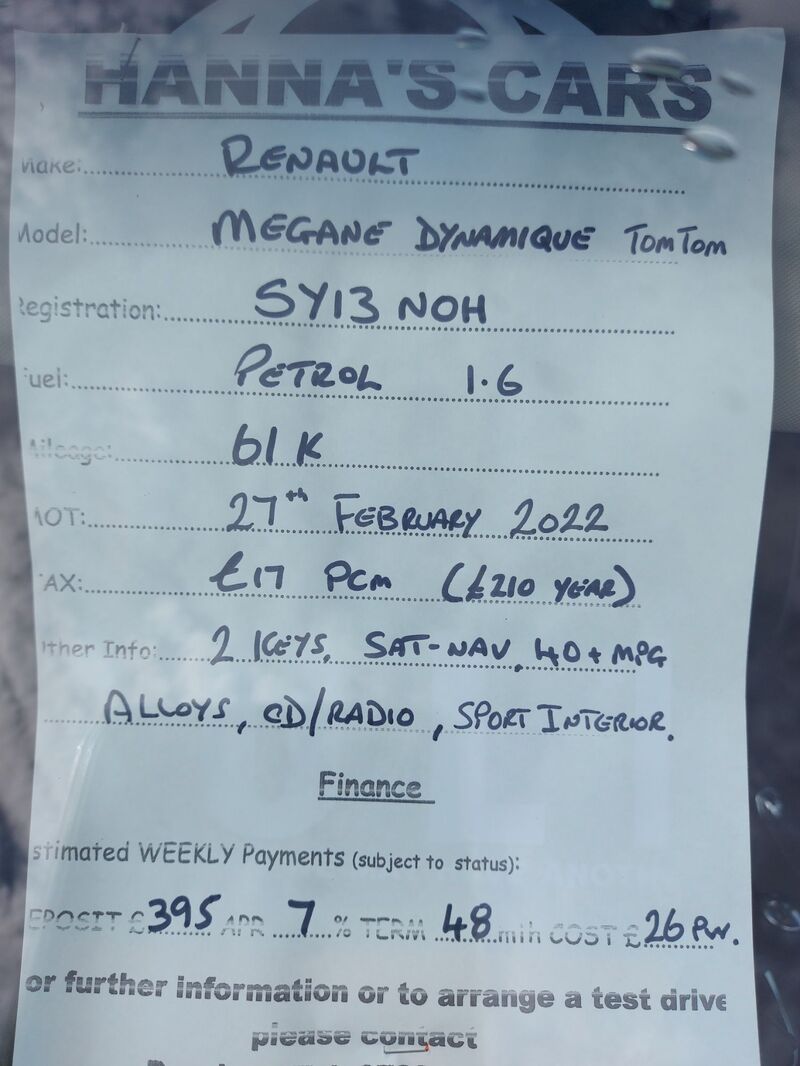 HANNA'S CARS
Make: RENAULT
Model: MEGANE DYNAMIQUE TOMTOM
Registration: SY13 NOH
Fuel: PETROL 1.6
Mileage: 61 K
MOT: 27th FEBRUARY 2022
TAX: £17 PCM (£210 YEAR)
Other Info: 2 KEYS, SAT-NAV, 40+ MPG
ALLOYS, CD/RADIO, SPORT INTERIOR.
Finance
stimated WEEKLY Payments (subject to status):
EPOSIT £395 APR 7 % TERM 48 mth COST £26 PW.
or further information or to arrange a test drive
please contact